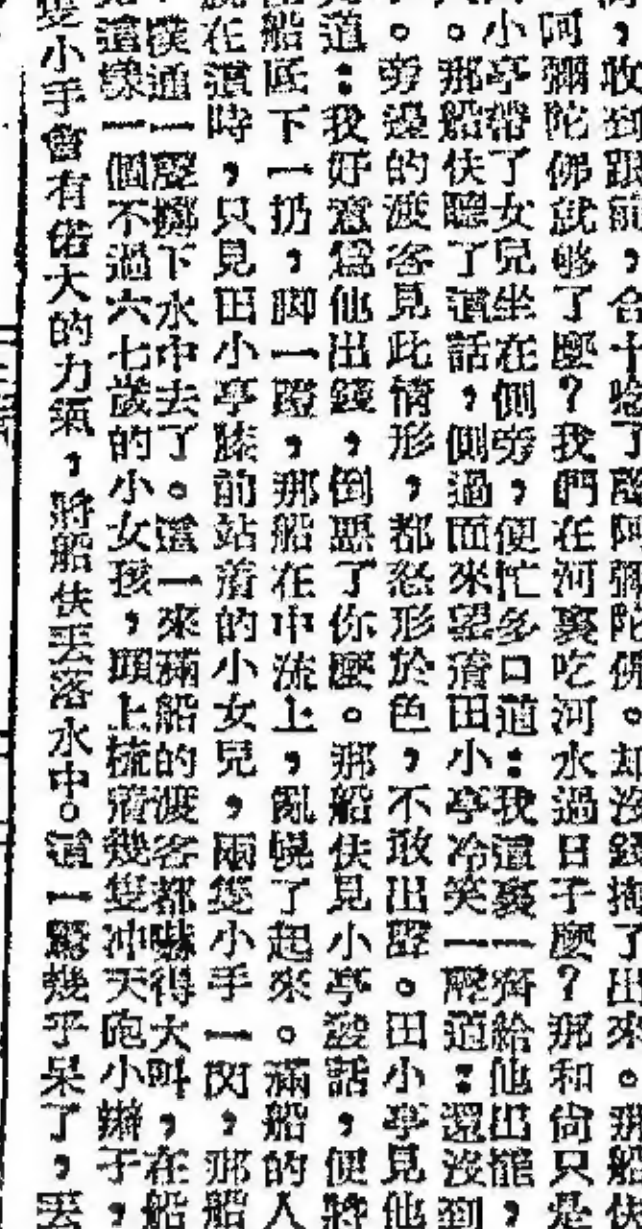 ，收到跟前，合十唸了聲阿彌陀佛。却沒錢掏了出來。那船伕
阿彌陀佛就够了麼？我們在河裏吃河水過日子麼？那和尙只是
小亭帶了女兒坐在側旁，便忙多口道：我這裏一齊給他出罷，
。那船伕聽了這話，側過面來望着田小亭冷笑一聲道：還沒到
。旁邊的渡客見此情形，都怒形於色，不敢出聲。田小亭見他
道：我好意爲他出錢，倒惡了你麼。那船伕見小亭發話，便將
船底下一扔，脚一蹬，那船在中流上，亂幌了起來。滿船的人
在這時，只見田小亭膝前站着的小女兒，兩隻小手一閃，那船
撲通一聲擲下水中去了。這一來滿船的渡客都嚇得大叫，在船
這樣一個不過六七歲的小女孩，頭上梳着幾隻冲天砲小辮子，
隻小手會有偌大的力氣，將船伕丟落水中。這一驚幾乎呆了，丟